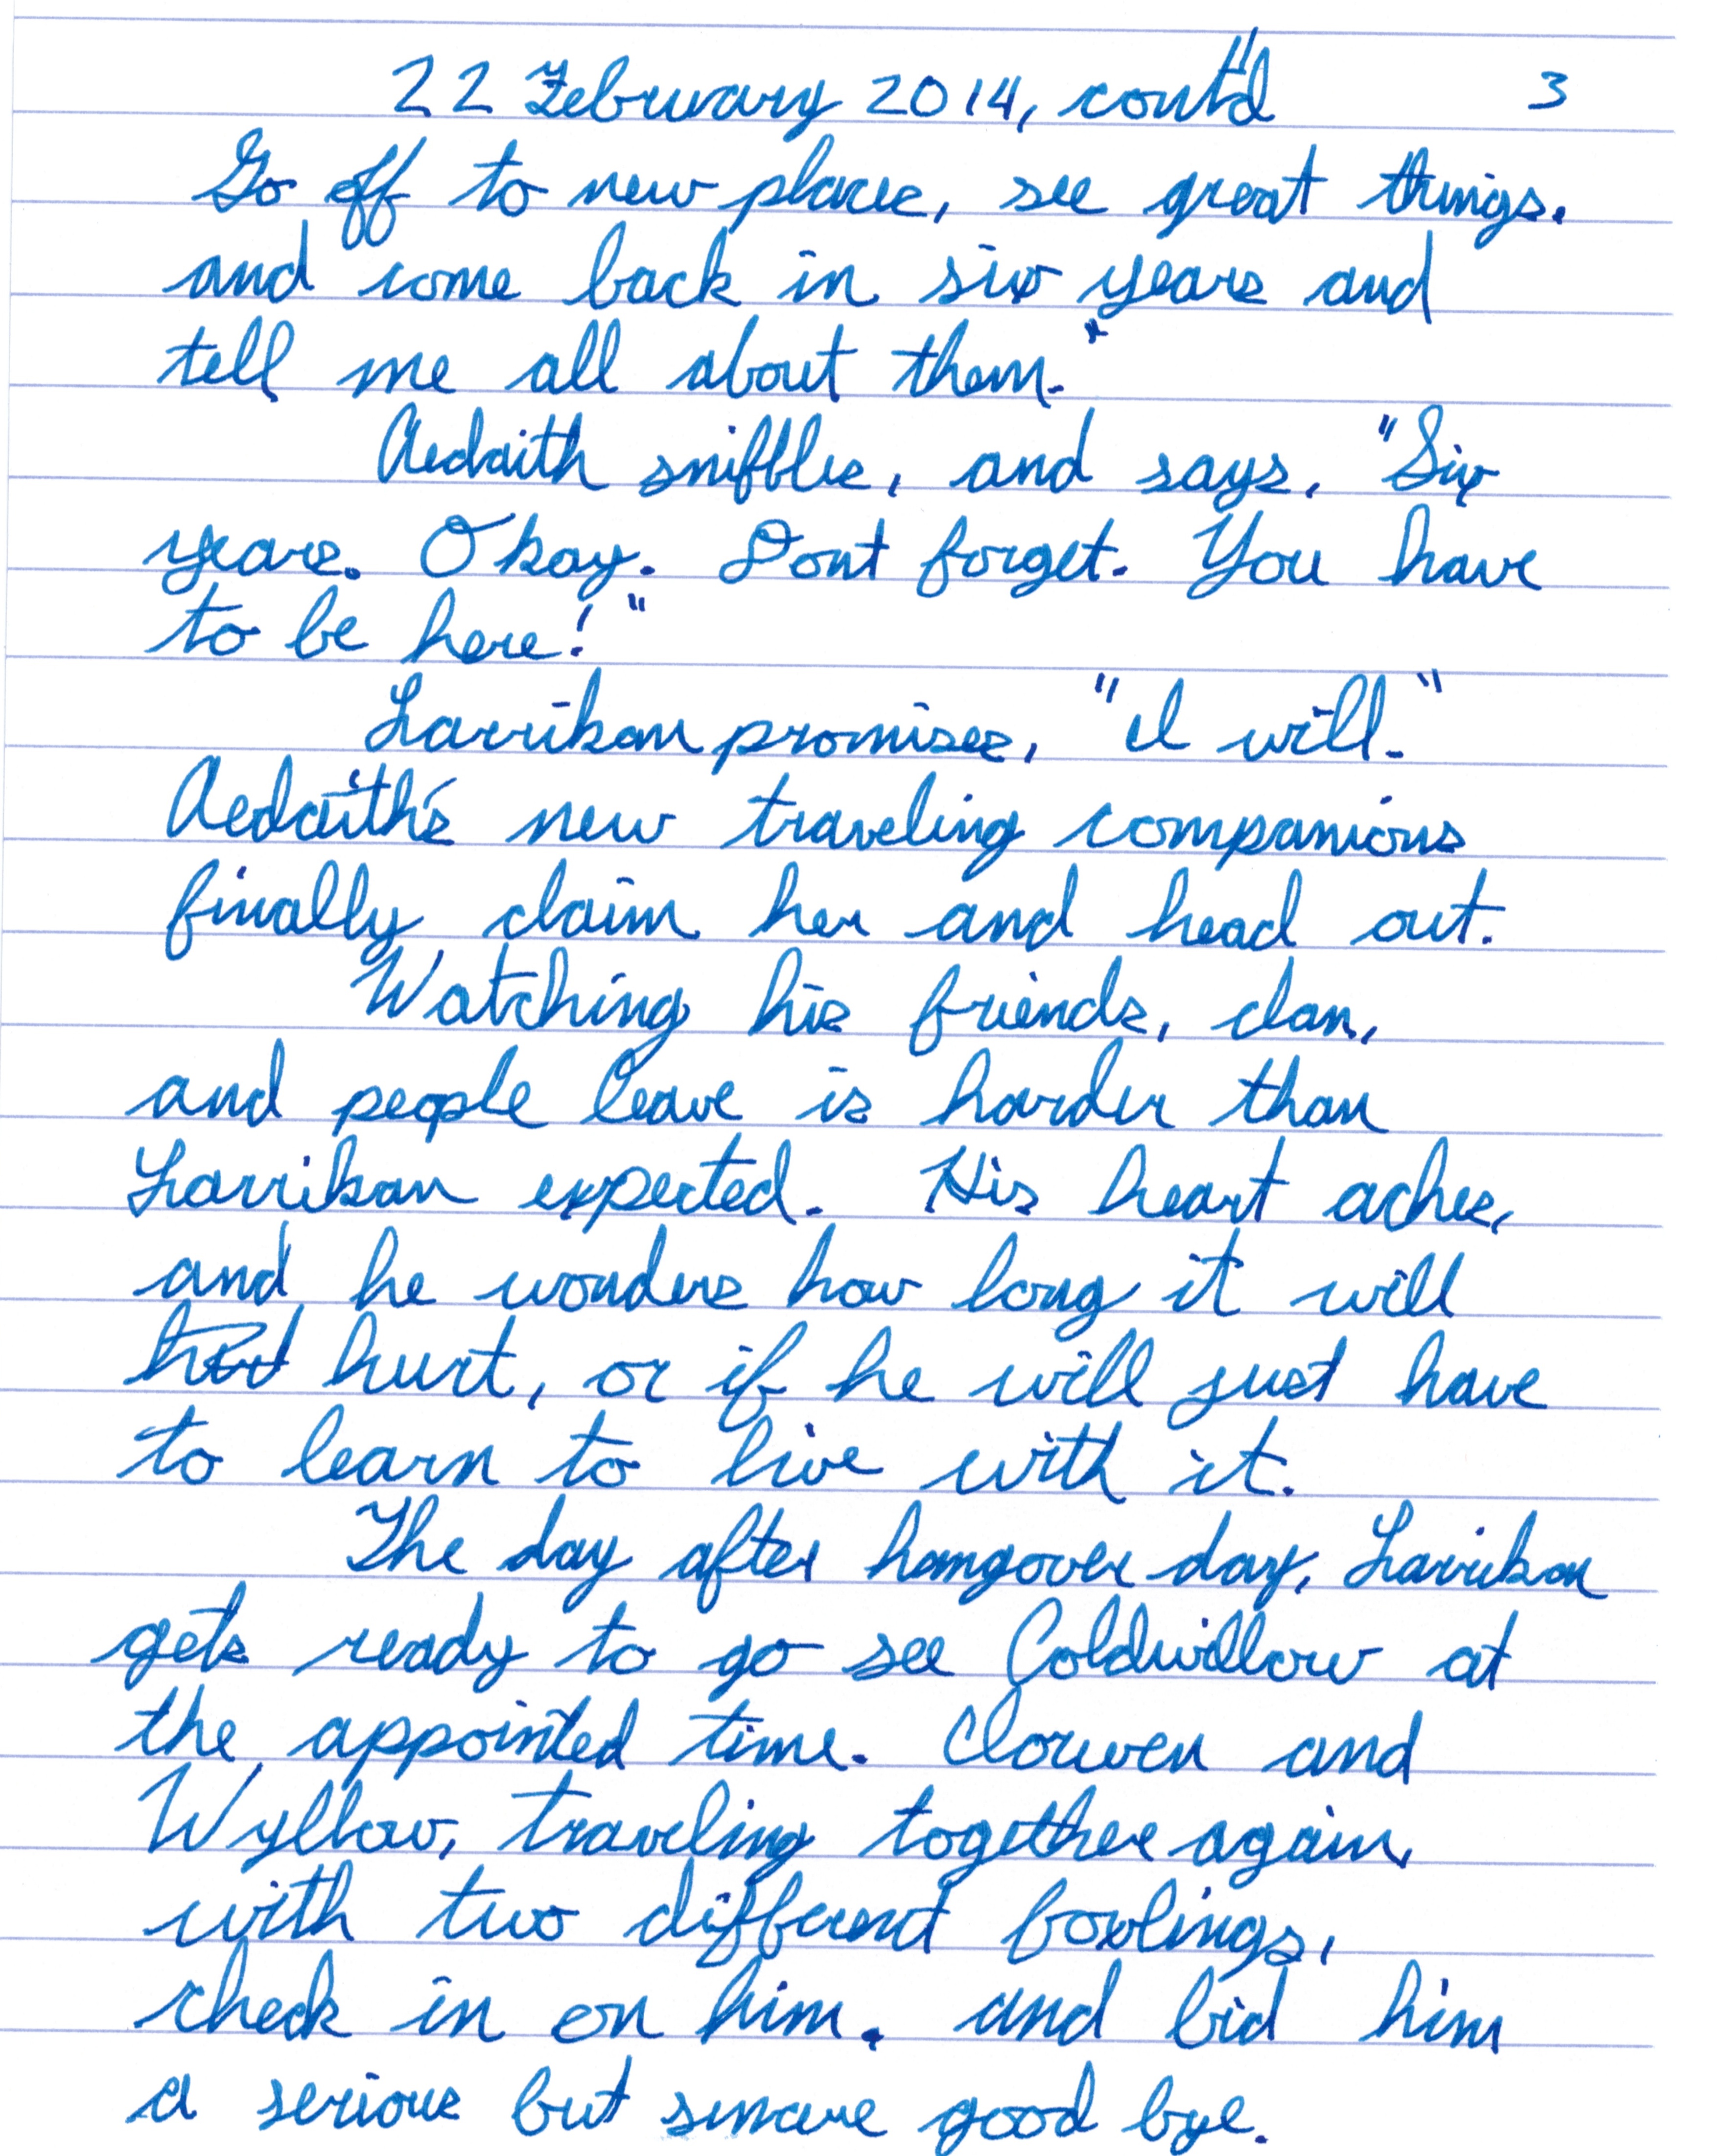 22 February 2014, cont'd 3
Go off to new places, see great things.
and come back in six years and
tell me all about them."
Aedaith sniffles, and says, "Six
years. Okay. Dont forget. You have
to be here!"
Larrikan promises, "I will."
Aedaith's new traveling companions
finally claim her and head out.
Watching his friends, clan,
and people leave is harder than
Larrikan expected. His heart aches,
and he wonders how long it will
hurt, or if he will just have
to learn to live with it.
The day after hangover day, Larrikan
gets ready to go see Coldwillow at
the appointed time. Clorwen and
Wyllow, traveling together again,
with two different foxlings,
check in on him. and bid him
a serious but sincere good bye.